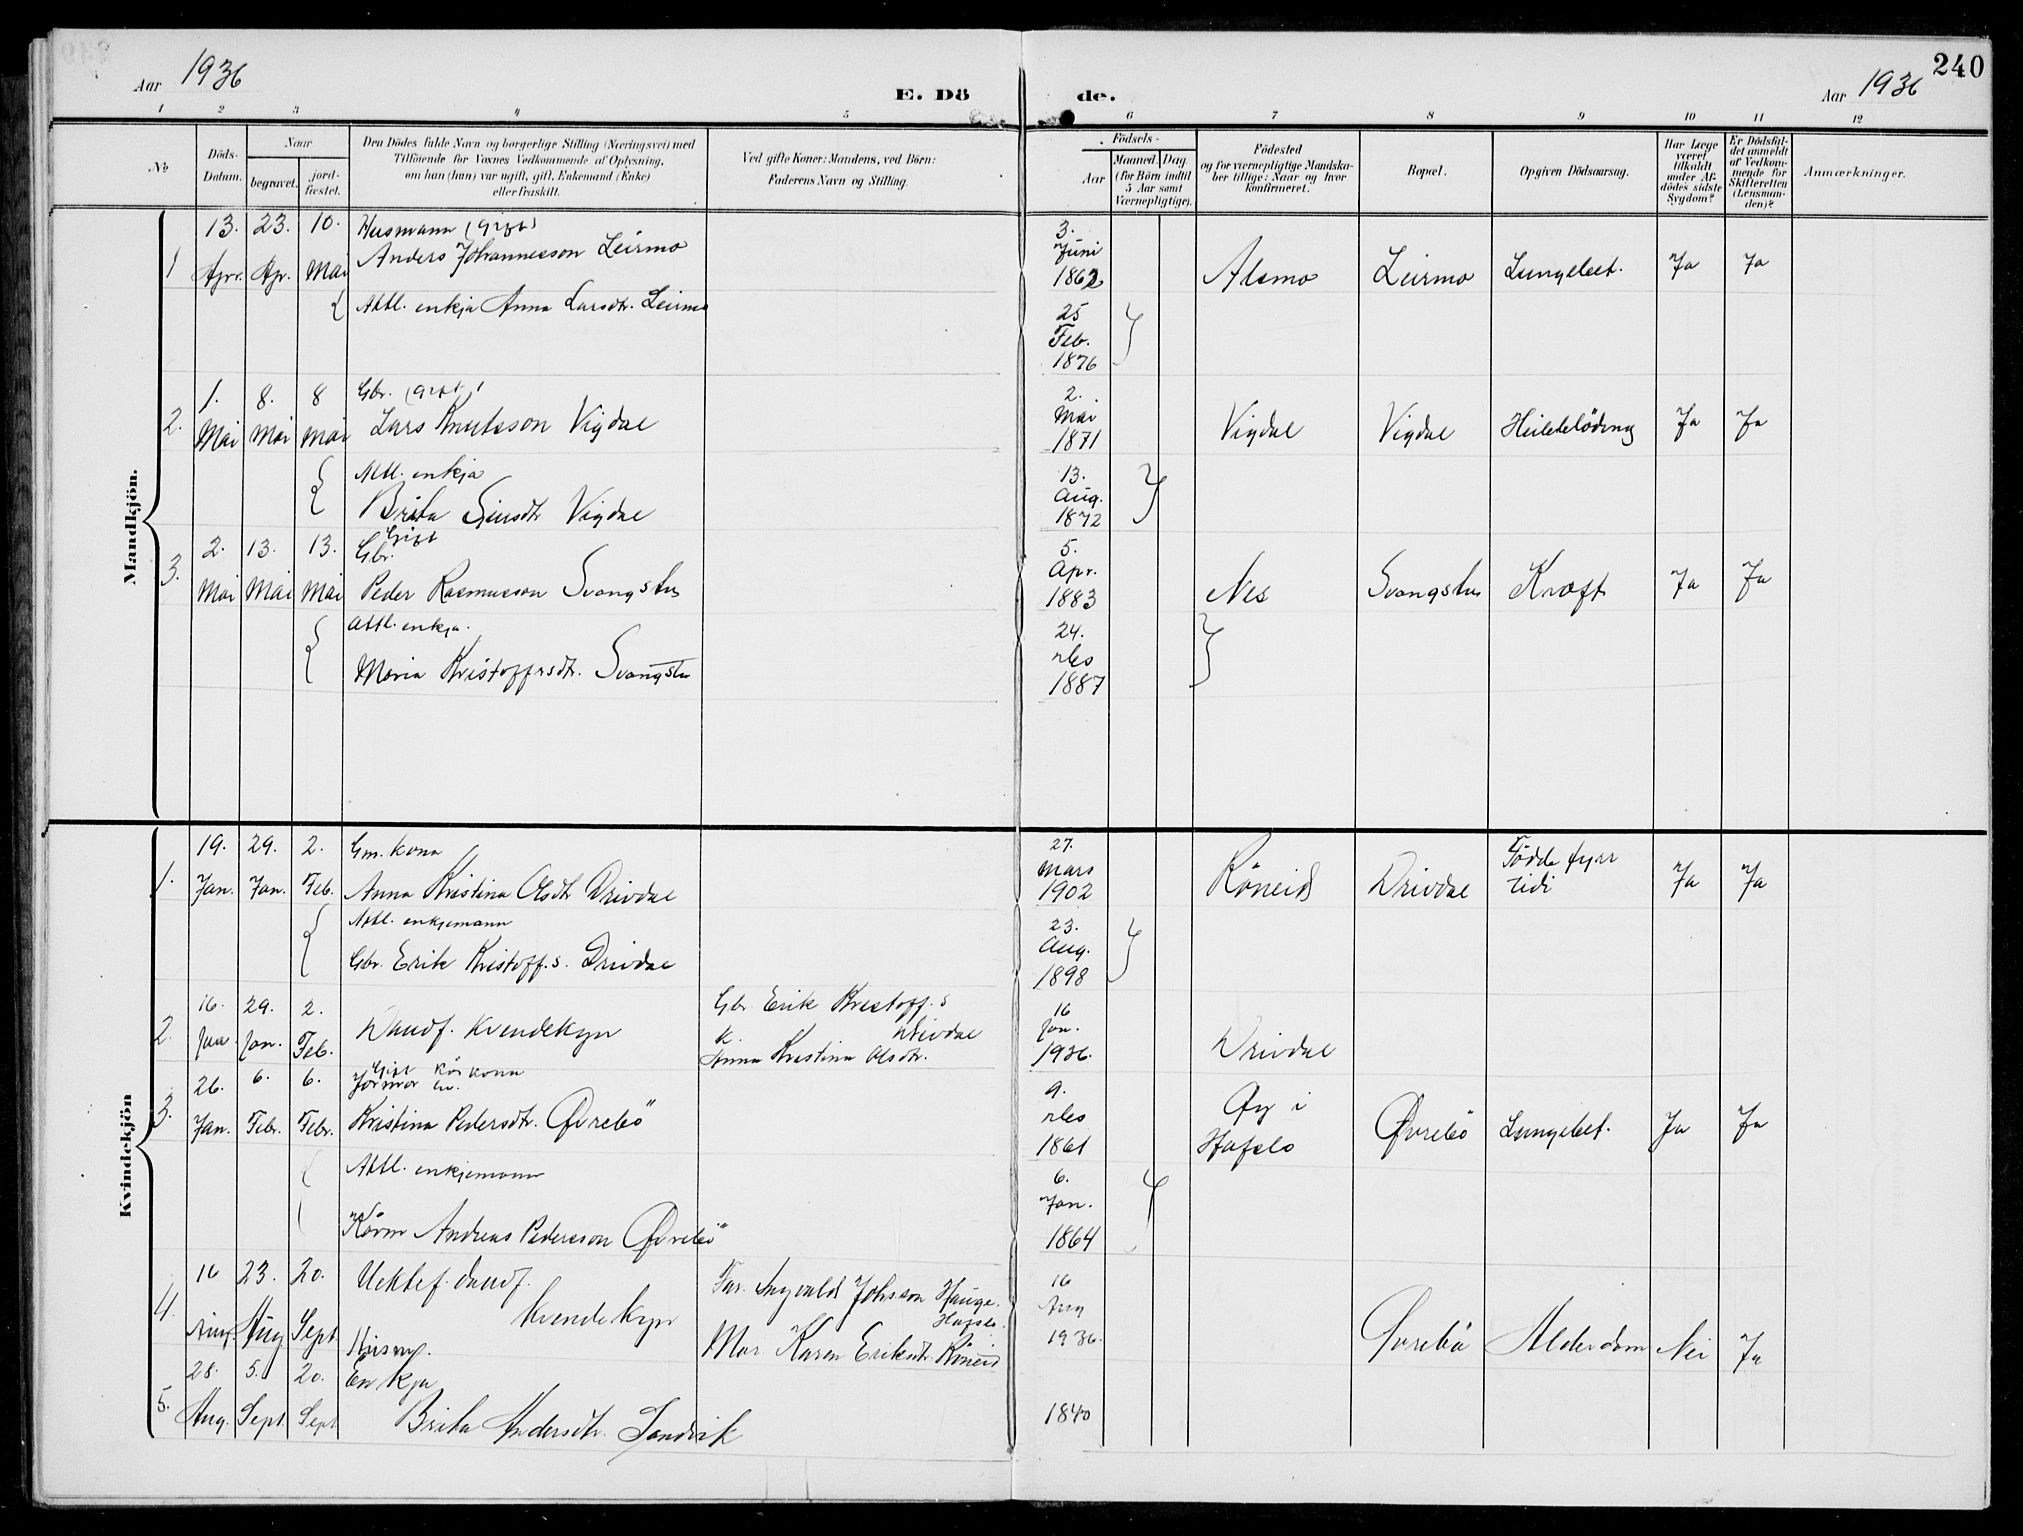 Aar 1936
E. Dö
de.
Aar 1936
240
1 2 3 4 5 6 7 8 9 10 11 12
No
Döds-Datum.
Naar
begravet.
jord-fæstet.
Den Dödes fulde Navn og borgerlige Stilling (Næringsvei) med
Tilföiende for Voxnes Vedkommende af Oplysning,
om han (hun) var ugift, gift, Enkemand (Enke)
eller fraskilt.
Ved gifte Koner: Mandens, ved Börn:
Faderens Navn og Stilling.
Födsels-
Aar
Maaned. Dag.
(for Börn indtil
5 Aar samt
Værnepligtige).
Födested
og for værnepligtige Mandska-
ber tillige: Naar og hvor
konfirmeret.
Bopæl.
Opgiven Dödsaarsag.
Har Læge
været
tilkaldt
under Af-
dödes sidste
Sygdom?
Er Dödsfal-
det anmeldt
af Vedkom-
mende for
Skifteretten
(Lensman-
den)?
Anmærkninger.
Mandkjön.
1 13. Apr. 23. Apr. 10. Mai Husmann (gift) Anders Johannesson Leirmo 3. Juni 1862 Alsmo Leirmo Lungebet. Ja Ja
Attl. enkja Anna Larsdtr. Leirmo 25 Feb. 1876
2. 1. Mai 8. Mai 8 Mai Gbr. (gift) Lars Knutsson Vigdal 2. Mai 1871 Vigdal Vigdal Heilebløding Ja Ja
Attl. enkja
Brita Vigdal 13. Aug. 1872
3. 2. Mai 13. Mai 13. Mai Gbr. Gift Peder Rasmusson Svangstu 5. Apr. 1883 Nes Svangstu Kræft Ja Ja
Attl. enkja.
Maria Kristoffersdtr. Svangstu 24. des 1887
Kvindekjön
1. 19. Jan. 29. Jan. 2. Feb. Gm. kona Anna Kristina Olsdtr Drivdal 27. Mars 1902 Röneid Drivdal Fødde fyrr tidi Ja Ja
Attl. enkjemann
Gbr. Erik Kristoff.s. Drivdal 23. Aug. 1898
2. 16. Jan 29. Jan. 2. Feb. Daudf. kvendekyn Gbr Erik Kristoff.s Drivdal k. Anna Kristina Olsdtr. 16 Jan. 1936. Drivdal
3. 26. Jan. 6. Febr. 6. Febr. Gift Jormor Kårkona Kristina Pedersdtr. Øvrebö 9. des 1861 Øy i Hafslo Øvrebö Lungebet. Ja Ja
Attl. enkjemann
Kårm Andreas Pedersson Øvrebö 6. Jan. 1864
4. 16 Aug. 23. Aug 20. Sept. Uektef. daudf. kvendekyn Far. Ingvald Johsson Hauge. Hafslo. Mor Karen Eriksdtr. Röneid 16 Aug 1936.
5. 28. Aug. 5. Sept. 20. Sept Enkja Brita Andersdtr. Sandvik 1840 Øvrebö Alderdom Nei Ja